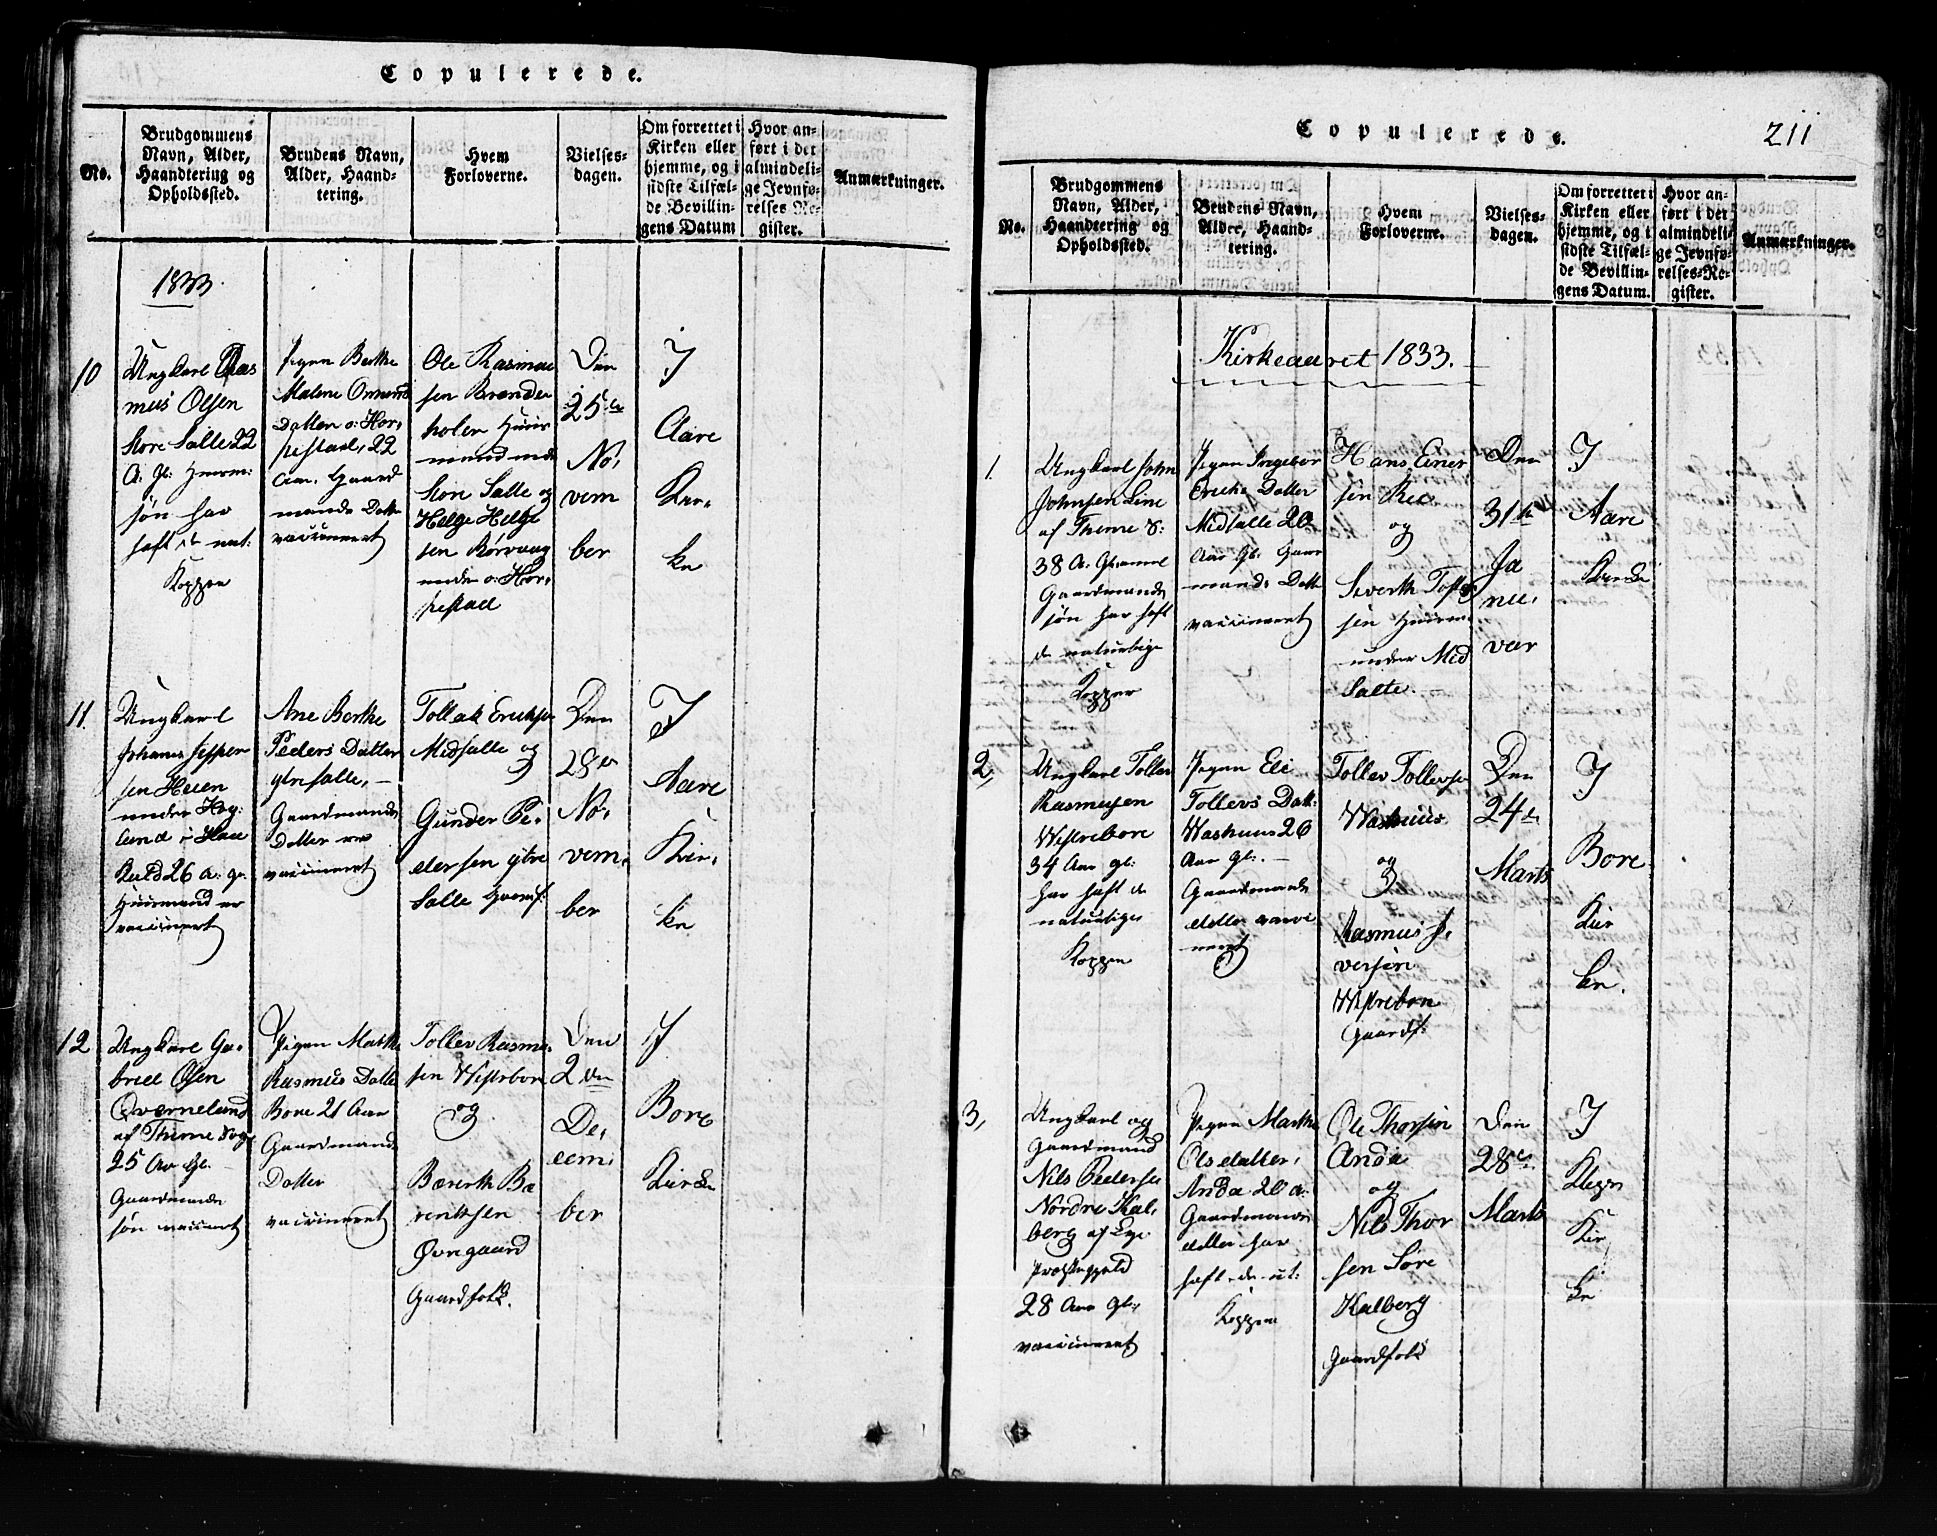 Copulerede.
No.
Brudgommens
Navn, Alder,
Haandtering og
Opholdssted.
Brudens Navn,
Alder, Haand-
tering.
Hvem
Forloverne.
Vielses-
dagen.
Om forrettet i
Kirken eller
hjemme, og i
sidste Tilfæl-
de Bevillin-
gens Datum
Hvor an-
ført i det
almindeli-
ge Jevnfø-
relses Re-
gister.
Anmærkninger.
1833
10
Ungkarl Ras
mus Olsen
Store Salte 22
A. gl.
søn har
haft de nat:
Kopper
Pigen Berthe
Malene Ommunds
Datter o: Hor,
pestad, 22
Aar. Gaard
mands Datter
vaccineret
Ole Rasmus
sen Brænde
holen Huus
mand under
Store Salte og
Helge Helge
sen Rørvaag
under o: Hor,
pestad
Den
25de
No,
vem
ber
I
Aare
Kir,
ke
11.
Ungkarl
Johannes Jesper
sen Heien
under Høg,
lund i Haae
Kald 26 a. gl.
Huusmand er
vaccineret
Ane Berthe
Peders Datter
ytre Salte,
Gaardmands
Datter er
vaccineret
Tollak Eriksen
Midsalte og
Gunder Pe,
dersen ytre
Salte Gaardf.
Den
28de
No,
vem,
ber
I
Aare
Kir,
ke
12
Ungkarl Ga,
briel Olsen
Qværneland
af Thime Sog
25 Aar Gl.
Gaardmands
søn vaccineret
Pigen Marthe
Rasmus Datter
Bore 21 Aar
Gaardmands
Datter
vaccineret
Tollev Rasmu,
sen Westrebore
og
Bærenth Bæ
rentsen
Øvregaard
Gaardfolk.
Den
2den
De,
cem,
ber
I
Bore
Kirke
Copulerede.
211
No.
Brudgommens
Navn, Alder,
Haandtering og
Opholdssted.
Brudens Navn,
Alder, Haand-
tering.
Hvem
Forloverne.
Vielses-
dagen.
Om forrettet i
Kirken eller
hjemme, og i
sidste Tilfæl-
de Bevillin-
gens Datum.
Hvor an-
ført i det
almindeli-
ge Jevnfø-
relses-Re-
gister.
Anmærkninger.
Kirkeaaret 1833.
1.
Ungkarl John
Johnsen Line
af Thime S:
38 A. Gammel
Gaardmands
søn har haft
de naturlige
Kopper
Pigen Ingebor
Ericks Datter
Midsalte 20
Aar Gl: Gaar
mands Datt
vaccineret
Hans Einer
sen Ree
og
Siverth Tosten
sen Huusm.
under Mid
Salte.
Den
31te
Ja
nu,
var
I
Aare
Kirke
2,
Ungkarl Tollev
Rasmusen
Westrebore
34 Aar gl:
har haft de
naturlige
Kopper
Pigen Eli
Tollevs Datt:
Washuus 26
Aar gl:
Gaardmands
datter vacci
neret
Tollev Tollevse
Washuus
og
Rasmus I,
versen
Westrebore
Gaardf.
Den
24de
Marts
I
Bore
Kir
ke.
3,
Ungkarl og
Gaardmand
Nils Pedersen
Nordre Kal,
berg af Lye
Præstegjeld
28 Aar gl.
vaccineret
Pigen Marthe
Olsdatter,
Anda 20 a.
Gaardmands
datter har
haft de nat:
Kopper
Ole Thorsen
Anda
og
Nils Thor
sen Søre
Kalberg
Gaardfolk
Den
28de
Marts
I
Klepp
Kir
ke